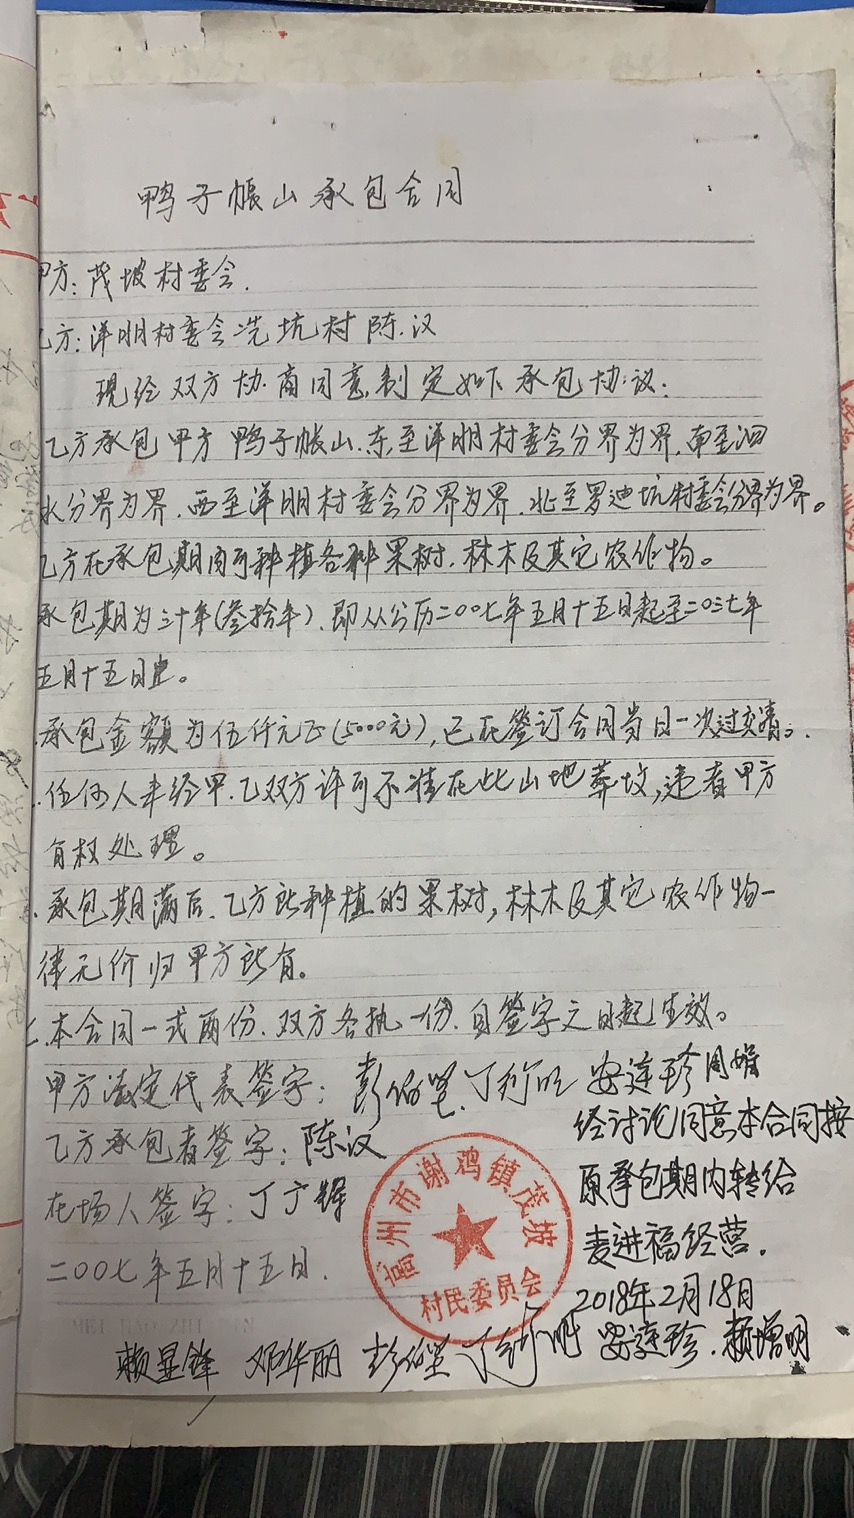 鸭子帐山承包合同
甲方：茂坡村委会.
乙方：洋明村委会冼坑村陈汉
现经双方协商同意,制定如下承包协议：
乙方承包甲方鸭子帐山.东至洋明村委会分界为界.南至泗
水分界为界.西至洋明村委会分界为界.北至罗迪坑村委会分界为界。
乙方在承包期内可种植各种果树.林木及其它农作物。
承包期为三十年(叁拾年).即从公历二00七年五月十五日起至二0三七年
五月十五日止。
.承包金额为伍仟元正(5000元),已在签订合同当日一次过交清。.
.任何人未经甲.乙双方许可不准在此山地葬坟,违者甲方
有权处理。
.承包期满后.乙方所种植的果树,林木及其它农作物一
律无价归甲方所有。
.本合同一式两份.双方各执一份.自签字之日起生效。
甲方法定代表签字：彭 安连珍
经讨论同意本合同按
乙方承包者签字：陈汉
原承包期内转给
在场人签字：丁广辉
麦进福经营。
二00七年五月十五日.
2018年2月18日
高州市谢鸡镇茂坡
村民委员会
MEI HAO ZHI
赖显锋 邓华丽 彭 安连珍.赖增明